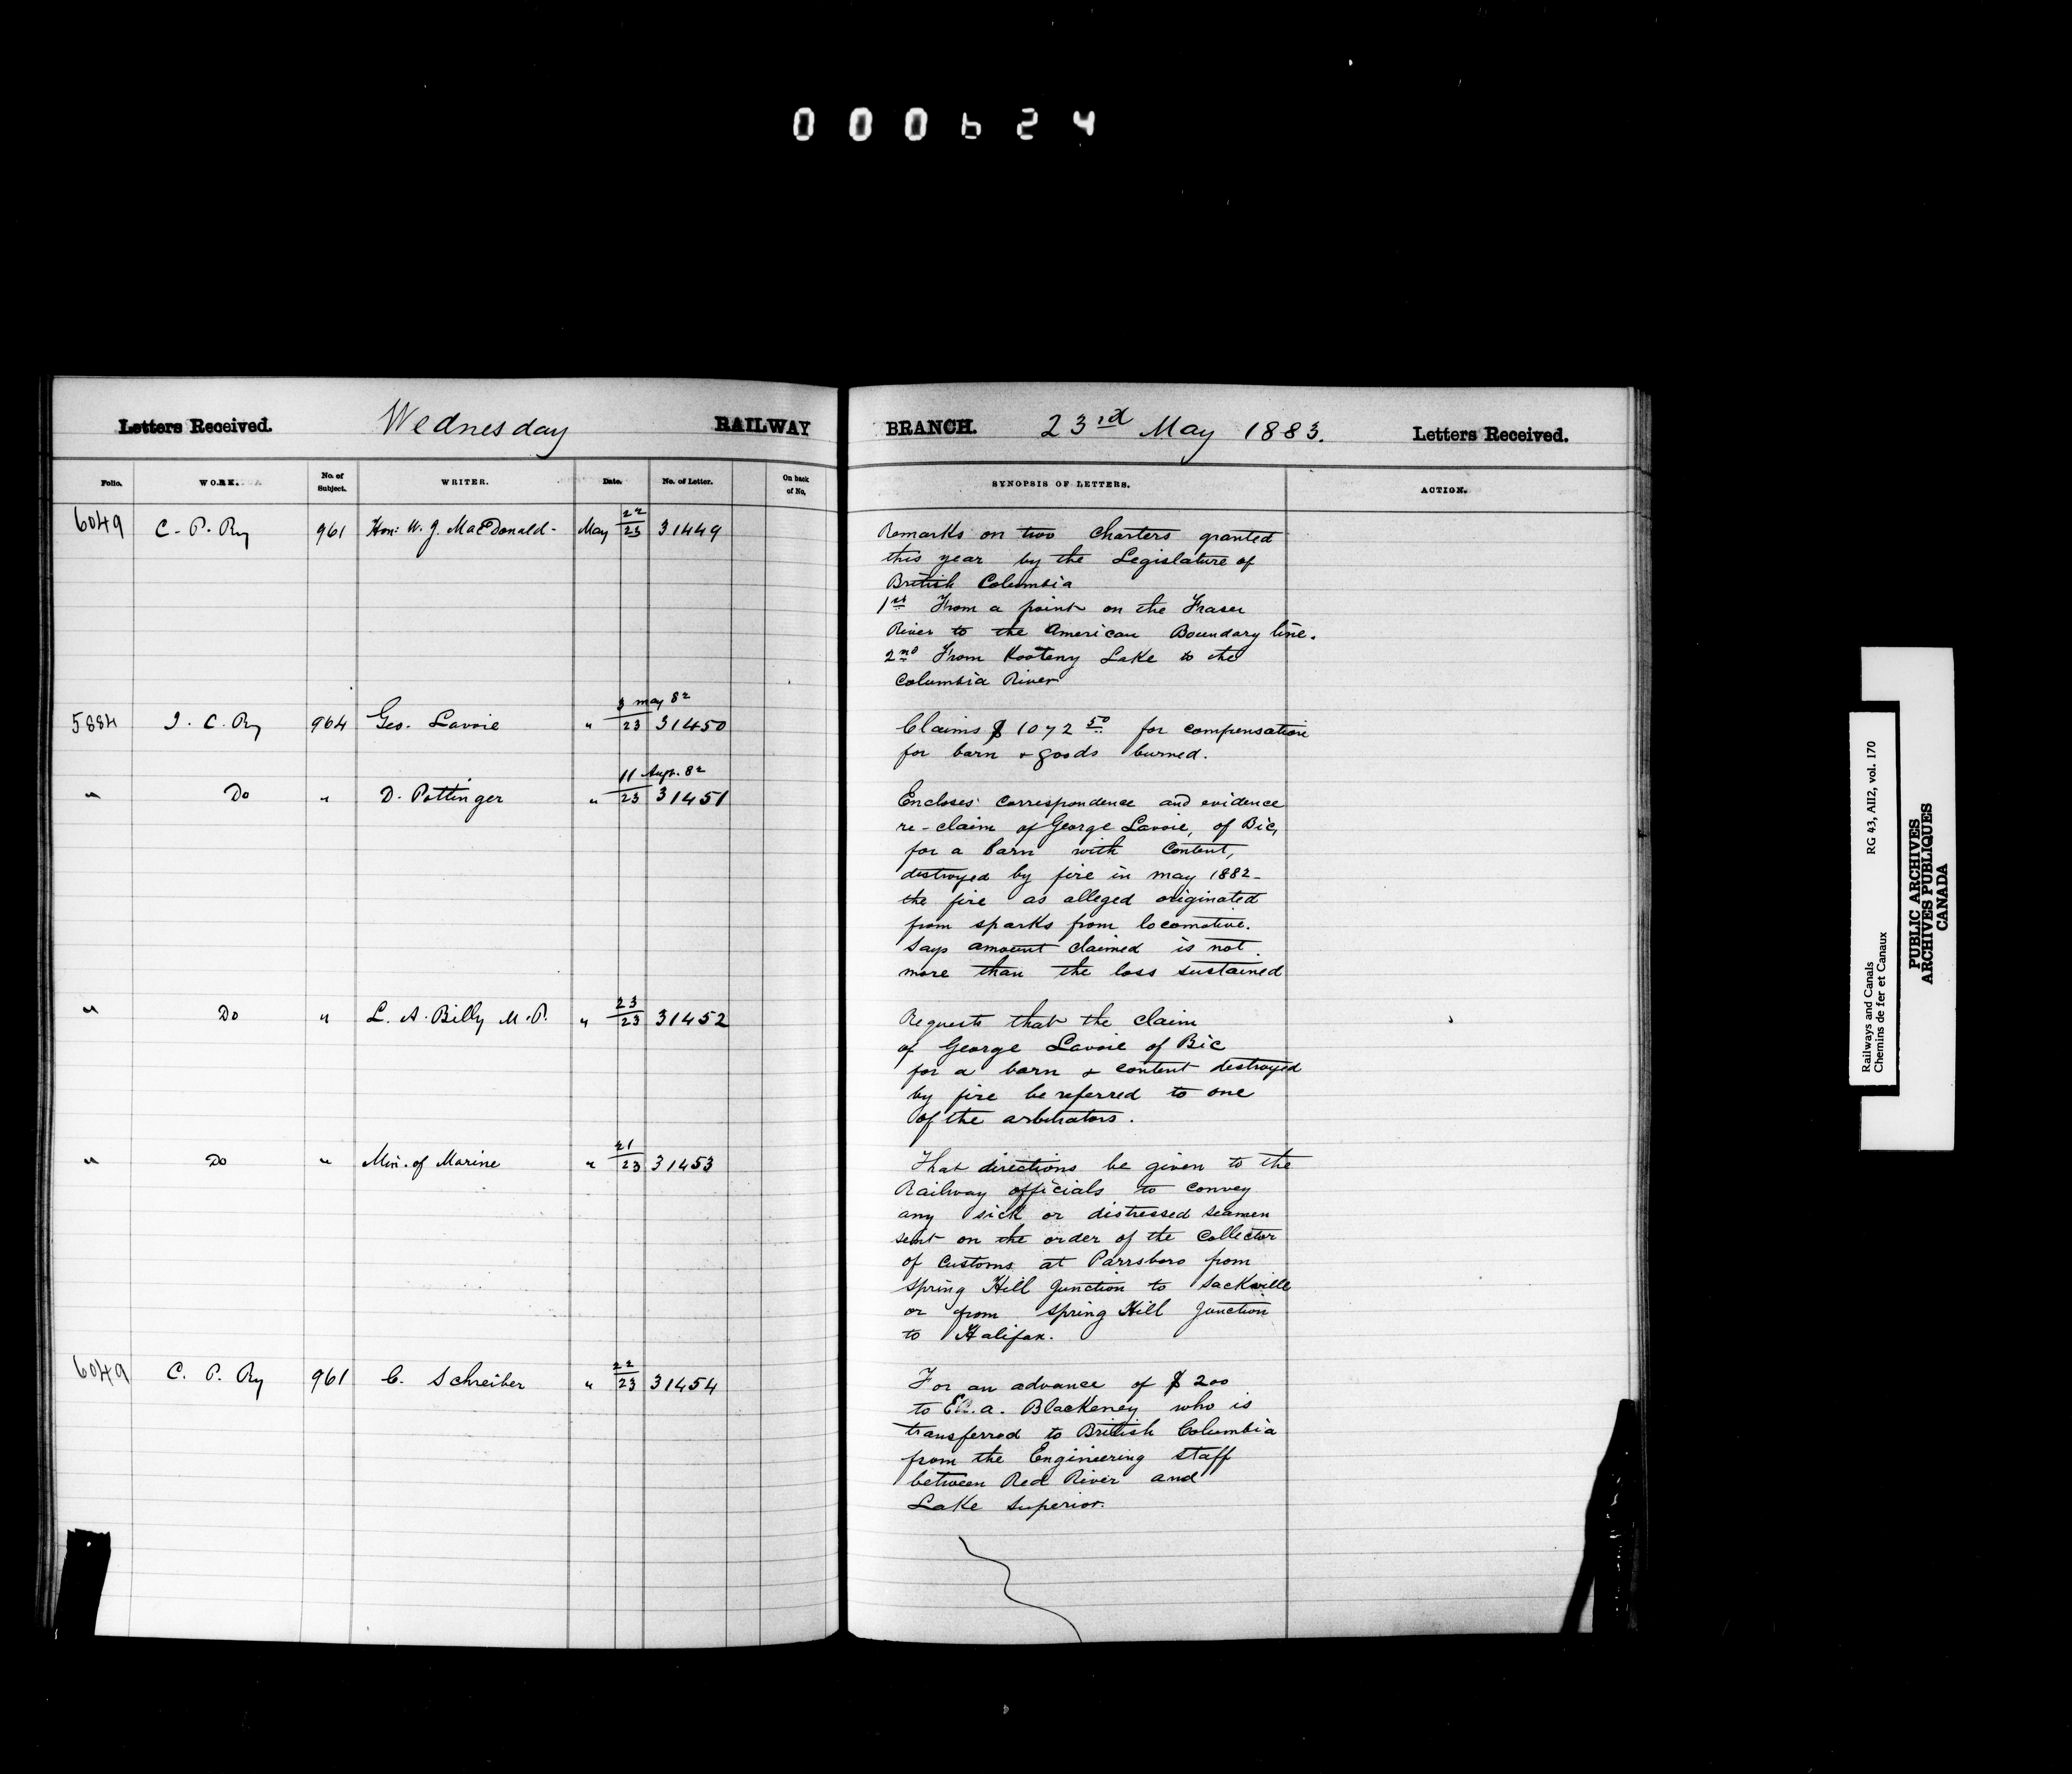 000624
Letters Received. Wednesday RAILWAY BRANCH. 23rd May 1883. Letters Received.
Folio. WORK. No. of Subject. WRITER. Date. No. of Letter. On back of No. SYNOPSIS OF LETTERS. ACTION.
6049 C. P. Ry 961 Hon: W. J. MacDonald - May 22/23 31449 Remarks on two Charters granted
this year by the Legislature of
British Columbia
1st From a point on the Fraser
River to the American Boundary line.
2nd From Kooteny Lake to the
Columbia River
5884 I. C. Ry 964 Geo. Lavoie " 3 may 82/23 31450 Claims $1072 50 for compensation
for barn & goods burned.
" Do " D. Pottinger " 11 Sept. 82/23 31451 Encloses correspondence and evidence
re-claim of George Lavoie, of Bic,
for a barn with Content,
destroyed by fire in may 1882-
the fire as alleged originated
from sparks from locomotive.
Says amount claimed is not
more than the loss sustained
" Do " L. A. Billy M.P. " 23/23 31452 Requests that the claim
of George Lavoie of Bic
for a barn & content destroyed
by fire be referred to one
of the arbitrators.
" Do " Min. of Marine " 21/23 31453 That directions be given to the
Railway officials to convey
any sick or distressed seamen
sent on the order of the Collector
of Customs at Parrsboro from
Spring Hill Junction to Sackville
or from Spring Hill Junction
to Halifax.
6049 C. P. Ry 961 C. Schreiber " 22/23 31454 For an advance of $200
to a. Blackeney who is
transferred to British Columbia
from the Engineering staff
between Red River and
Lake Superior.
Railways and Canals RG 43, AII2, vol. 170
Chemins de fer et Canaux
PUBLIC ARCHIVES
ARCHIVES PUBLIQUES
CANADA